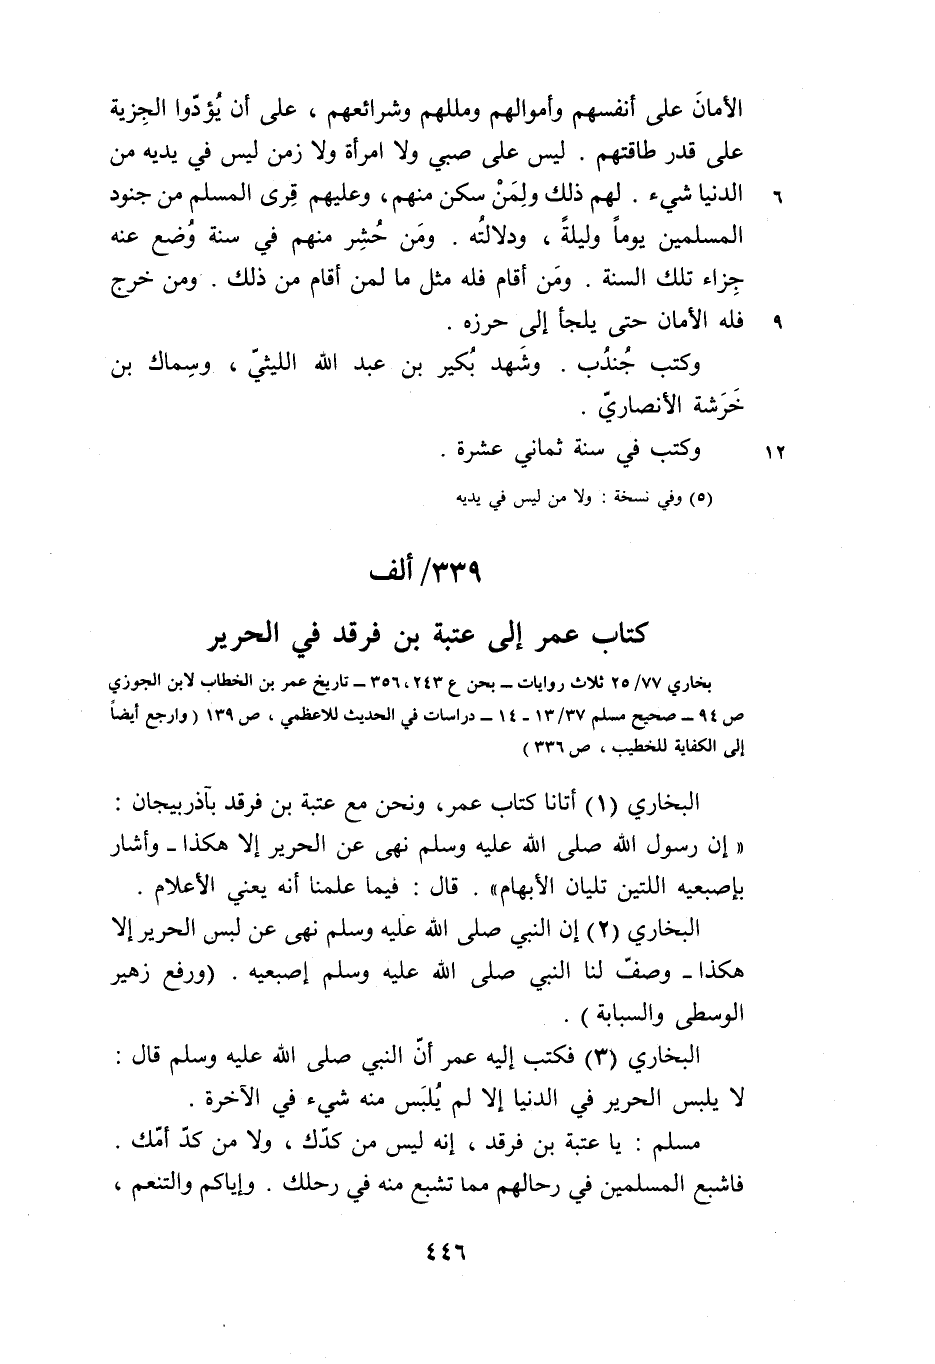 الأمانَ على أنفسهم وأموالهم ومللهم وشرائعهم ، على أن يُؤدّوا الجِزية
على قدر طاقتهم . ليس على صبي ولا امرأة ولا زمن ليس في يديه من
٦ الدنيا شيء . لهم ذلك ولِمَنْ سكن منهم، وعليهم قِرى المسلم من جنود
المسلمين يوماً وليلةً ، ودلالتُه . ومَن حُشِر منهم في سنة وُضع عنه
جِزاء تلك السنة . ومَن أقام فله مثل ما لمن أقام من ذلك . ومن خرج
٩ فله الأمان حتى يلجأ إلى حرزه .
وكتب جُندُب . وشَهد بُكير بن عبد الله الليثيّ ، وسِماك بن
خَرَشة الأنصاريّ .
١٢ وكتب في سنة ثماني عشرة .
(٥) وفي نسخة : ولا من ليس في يديه
٣٣٩/ ألف
كتاب عمر إلى عتبة بن فرقد في الحرير
بخاري ٢٥/٧٧ ثلاث روايات ــ بحن ع ٢٤٣، ٣٥٦ ــ تاريخ عمر بن الخطاب لابن الجوزي
ص ٩٤ ــ صحيح مسلم ١٣/٣٧ ـ ١٤ ــ دراسات في الحديث للاعظمي ، ص ١٣٩ ( وارجع أيضاً
إلى الكفاية للخطيب ، ص ٣٣٦ )
البخاري (١) أتانا كتاب عمر، ونحن مع عتبة بن فرقد بآذربيجان :
« إن رسول الله صلى الله عليه وسلم نهى عن الحرير إلا هكذا ـ وأشار
بإصبعيه اللتين تليان الأبهام» . قال : فيما علمنا أنه يعني الأعلام .
البخاري (٢) إن النبي صلى الله عليه وسلم نهى عن لبس الحرير إلا
هكذا ـ وصفّ لنا النبي صلى الله عليه وسلم إصبعيه . (ورفع زهير
الوسطى والسبابة ) .
البخاري (٣) فكتب إليه عمر أنّ النبي صلى الله عليه وسلم قال :
لا يلبس الحرير في الدنيا إلا لم يُلبَس منه شيء في الآخرة .
مسلم : يا عتبة بن فرقد ، إنه ليس من كدّك ، ولا من كدّ أمّك .
فاشبع المسلمين في رحالهم مما تشبع منه في رحلك . وإياكم والتنعم ،
٤٤٦